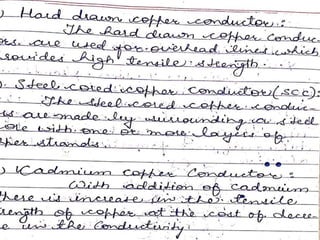 ) Hard drawn copper conductor :
The hard drawn copper conduc-
ors are used for overhead lines which
rovides high tensile strength.
) Steel cored copper conductor (SCC):
The steel cored copper conduc-
rs are made by surrounding a steel
ore with one or more layers of
pper strands.
) Kadmium copper Conductor :
With addition of cadmium
there is increase in the tensile
rength of copper at the cost of decre-
e in the conductivity.